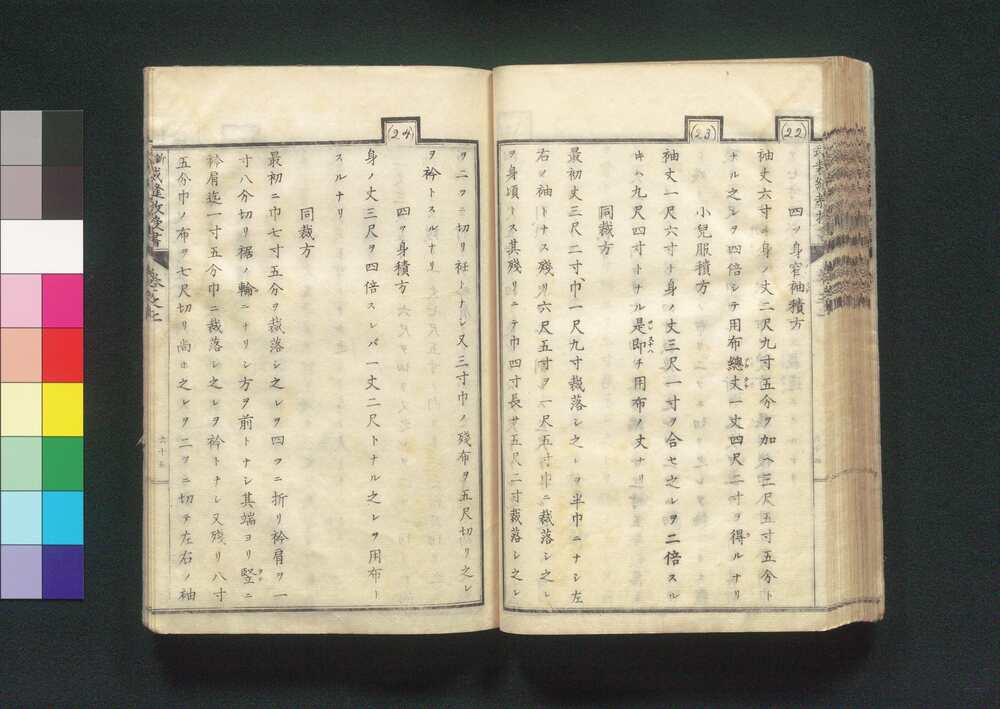 (22)
四ツ身窄袖積方
袖丈六寸ヰ身ノ丈二尺九寸五分ヲ加ヘ三尺五寸五分ト
ナル之レヲ四倍シテ用布總丈一丈四尺二寸ヲ得ルナリ
(23)
小兒服積方
袖丈一尺六寸ト身ノ丈三尺一寸ヲ合セ之レヲ二倍スル
キハ九尺四寸トナル是即チ用布ノ丈ナリ
同裁方
最初丈三尺二寸巾一尺九寸裁落シ之レヲ半巾ニナシ左
右ノ袖トナス殘リ六尺五寸ヲ一尺五寸巾ニ裁落シ之レ
ヲ身頃トス其殘リニテ巾四寸長サ五尺二寸裁落シ之レ
ヲ二ツニ切リ衽トナシ又三寸巾ノ殘布ヲ五尺切リ之レ
ヲ衿トスルナリ
(24)
四ツ身積方
身ノ丈三尺ヲ四倍スレバ一丈二尺トナル之レヲ用布ト
スルナリ
同裁方
最初ニ巾七寸五分ヲ裁落シ之レヲ四ツニ折リ衿肩ヲ一
寸八分切リ裾ノ輪ニナリシ方ヲ前トナシ其端ヨリ竪ニ
衿肩迄一寸五分巾ニ裁落シ之レヲ衿トナシ又殘リ八寸
五分巾ノ布ヲ七尺切リ尚ホ之レヲ二ツニ切テ左右ノ袖
新裁縫敎授書
卷之上
六十五